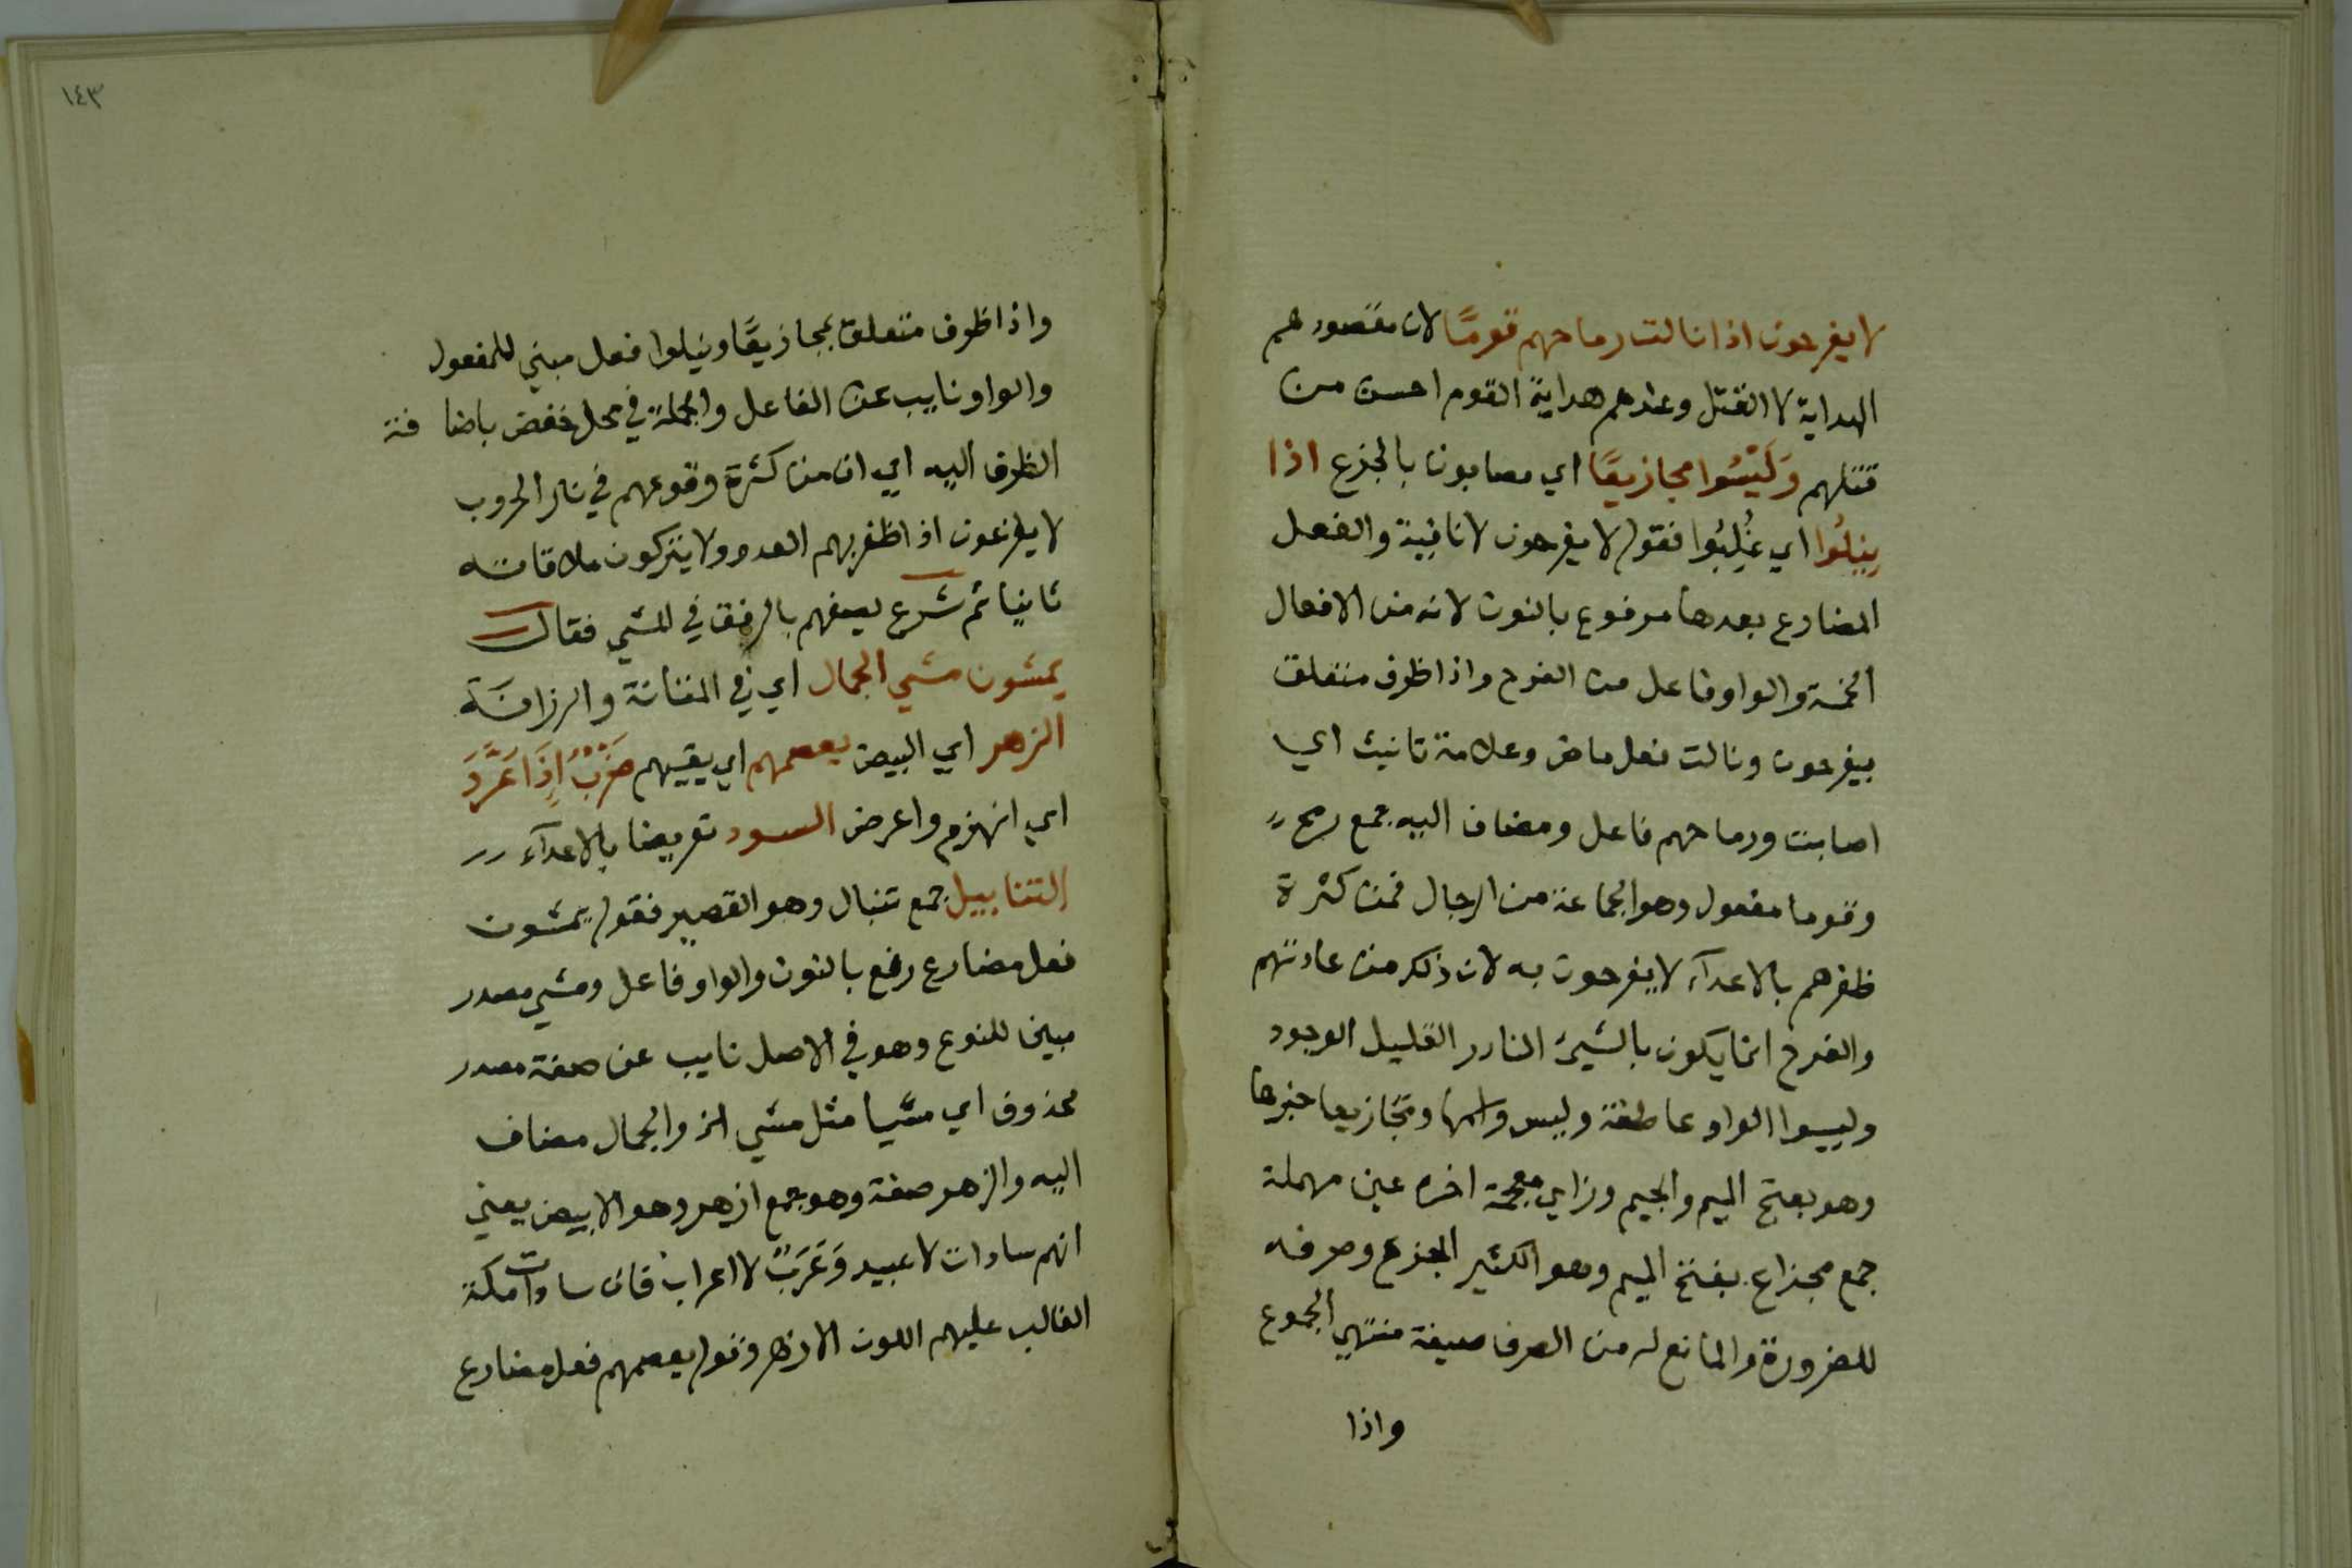 لا يفرحون اذا نالت رماحهم قومًا لان مقصودهم
الهداية لا القتل وعندهم هداية القوم احسن من
قتلهم وَلَيْسُوا مجازيعًا اي مصابون بالجزع اذا
ينيلُوا اي غُلِبُوا فقوله لا يفرحون لا نافية والفعل
المضارع بعدها مرفوع بالنون لانه من الافعال
الخمسة والواو فاعل من الفرح واذا ظرف متعلق
بيفرحون ونالت فعل ماض وعلامة تانيث اي
اصابت ورماحهم فاعل ومضاف اليه جمع رمح
وقوما مفعول وهو الجماعة من الرجال فمن كثرة
ظفرهم بالاعدآء لا يفرحون به لان ذلك من عادتهم
والفرح انما يكون بالشيئ النادر القليل الوجود
وليسوا الواو عاطفة وليس واسمها ومجازيعا خبرها
وهو بفتح الميم والجيم وزاي معجمة اخره عين مهملة
جمع مجزاع بفتح الميم وهو الكثير الجزع وصرفه
للضرورة والمانع له من الصرف صيغة منتهي الجموع
واذا
١٤٣
واذا ظرف متعلق بمجازيعًا ونيلوا فعل مبني للمفعول
والواو نايب عن الفاعل والجملة في محل خفض باضا فة
الظرف اليه اي ان من كثرة وقوعهم في نار الحروب
لا يفزعون اذا ظفر بهم العدو ولا يتركون ملاقاته
ثانيا ثم شرع يصفهم بالرفق في المشي فقال
يمشون مشي الجمال اي في المتانة والرزانَة
الزهر اي البيض يعصمهم اي يقيهم ضَرْبٌ إِذَا عَرَّدَ
اي انهزم واعرض السود تعريضا بالاعدآء
التنابيل جمع تنبال وهو القصير فقوله يمشون
فعل مضارع رفع بالنون والواو فاعل ومشي مصدر
مبين للنوع وهو في الاصل نايب عن صفة مصدر
محذوف اي مشيا مثل مشي الخ والجمال مضاف
اليه والزهر صفة وهو جمع ازهر وهو الابيض يعني
انهم سادات لا عبيد وَعَرَبٌ لا اعراب فان سادات مكة
الغالب عليهم اللون الازهر وقوله يعصمهم فعل مضارع